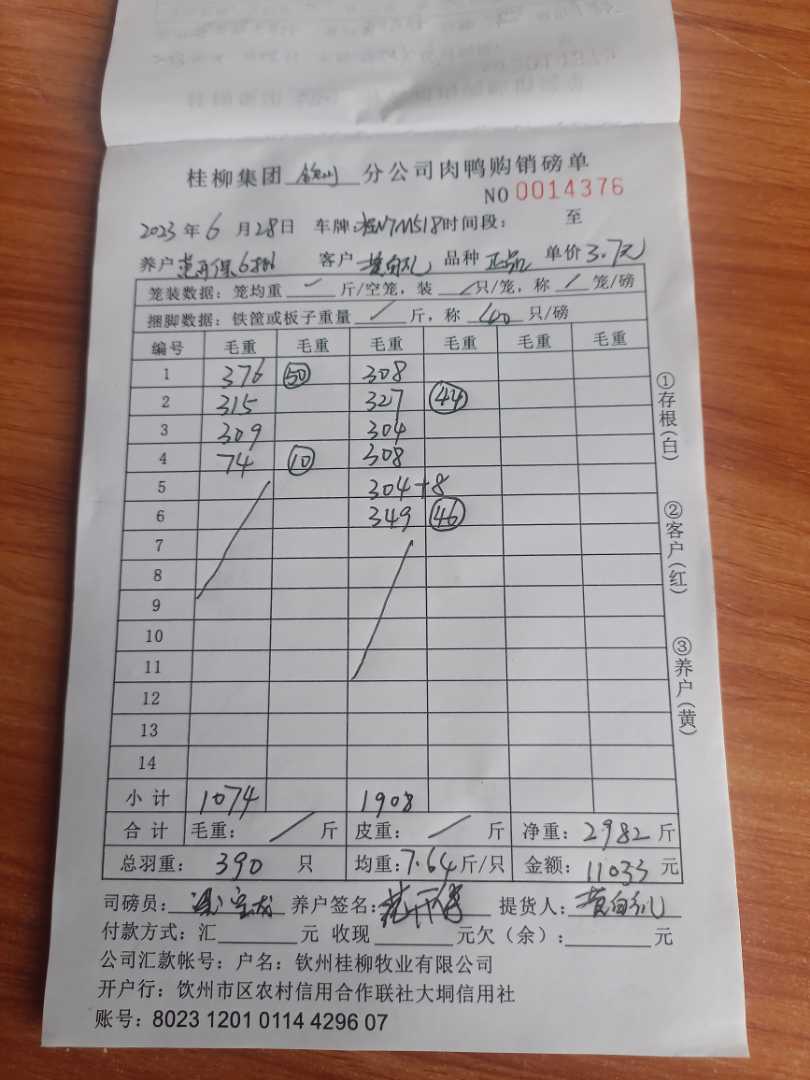 桂柳集团 钦州 分公司肉鸭购销磅单
NO 0014376
2023 年 6 月 28 日 车牌:桂N7M518 时间段: 至
养户 6 客户 黄 品种 正品 单价 3.7元
笼装数据: 笼均重 / 斤/空笼, 装 / 只/笼, 称 / 笼/磅
捆脚数据: 铁筐或板子重量 / 斤, 称 40 只/磅
编号 毛重 毛重 毛重 毛重 毛重 毛重
1 376 50 308
2 315 327 44
3 309 304
4 74 10 308
5 304+8
6 349 46
7
8
9
10
11
12
13
14
小计 1074 1908
合计 毛重: / 斤 皮重: / 斤 净重: 2982 斤
总羽重: 390 只 均重: 7.64 斤/只 金额: 11033 元
司磅员: 养户签名: 提货人: 黄
付款方式: 汇 元 收现 元欠(余): 元
公司汇款帐号: 户名: 钦州桂柳牧业有限公司
开户行: 钦州市区农村信用合作联社大垌信用社
账号: 8023 1201 0114 4296 07
①存根(白)
②客户(红)
③养户(黄)